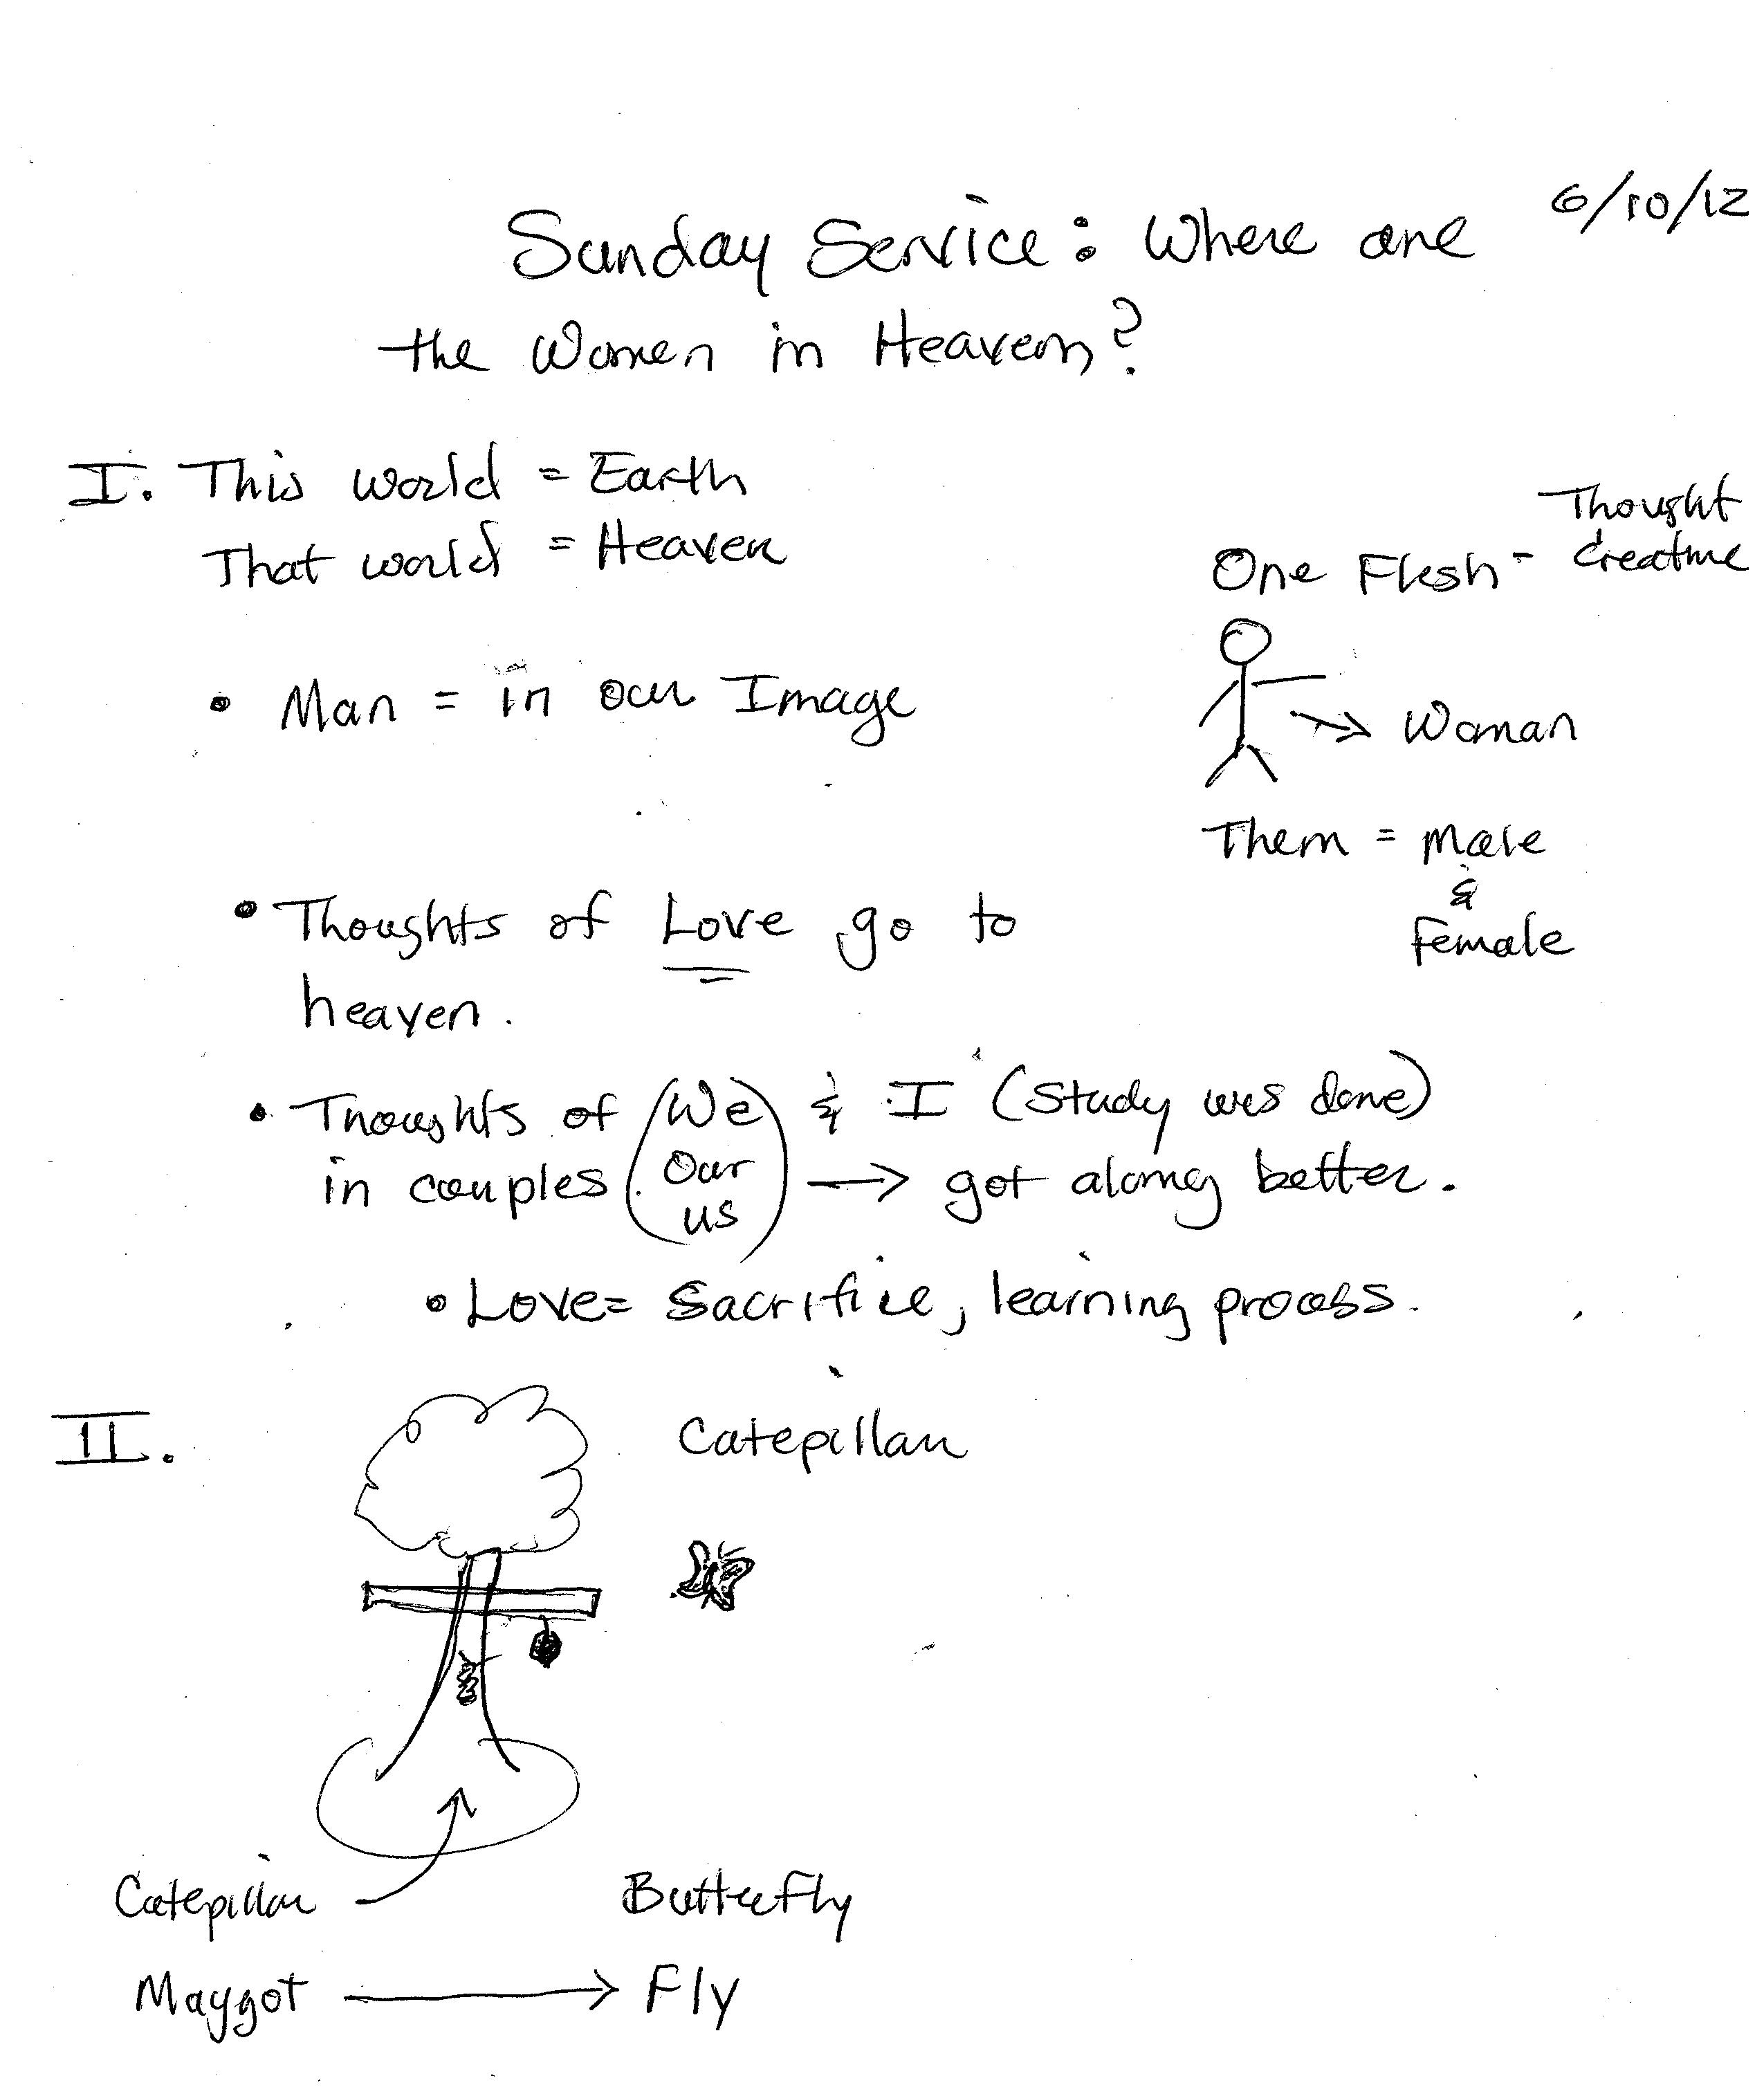 6/10/12
Sunday Service: Where are
the Women in Heaven?
I. This world = Earth
That world = Heaven
Thought
One Flesh - Creature
• Man = in our Image
→ Woman
Them = Male
&
Female
• Thoughts of Love go to
heaven.
• Thoughts of (We) & I (Study was done)
in couples (Our → got along better.
us)
• Love = Sacrifice, learning process.
II.
Catepillar
Catepillar
Butterfly
Maggot → Fly